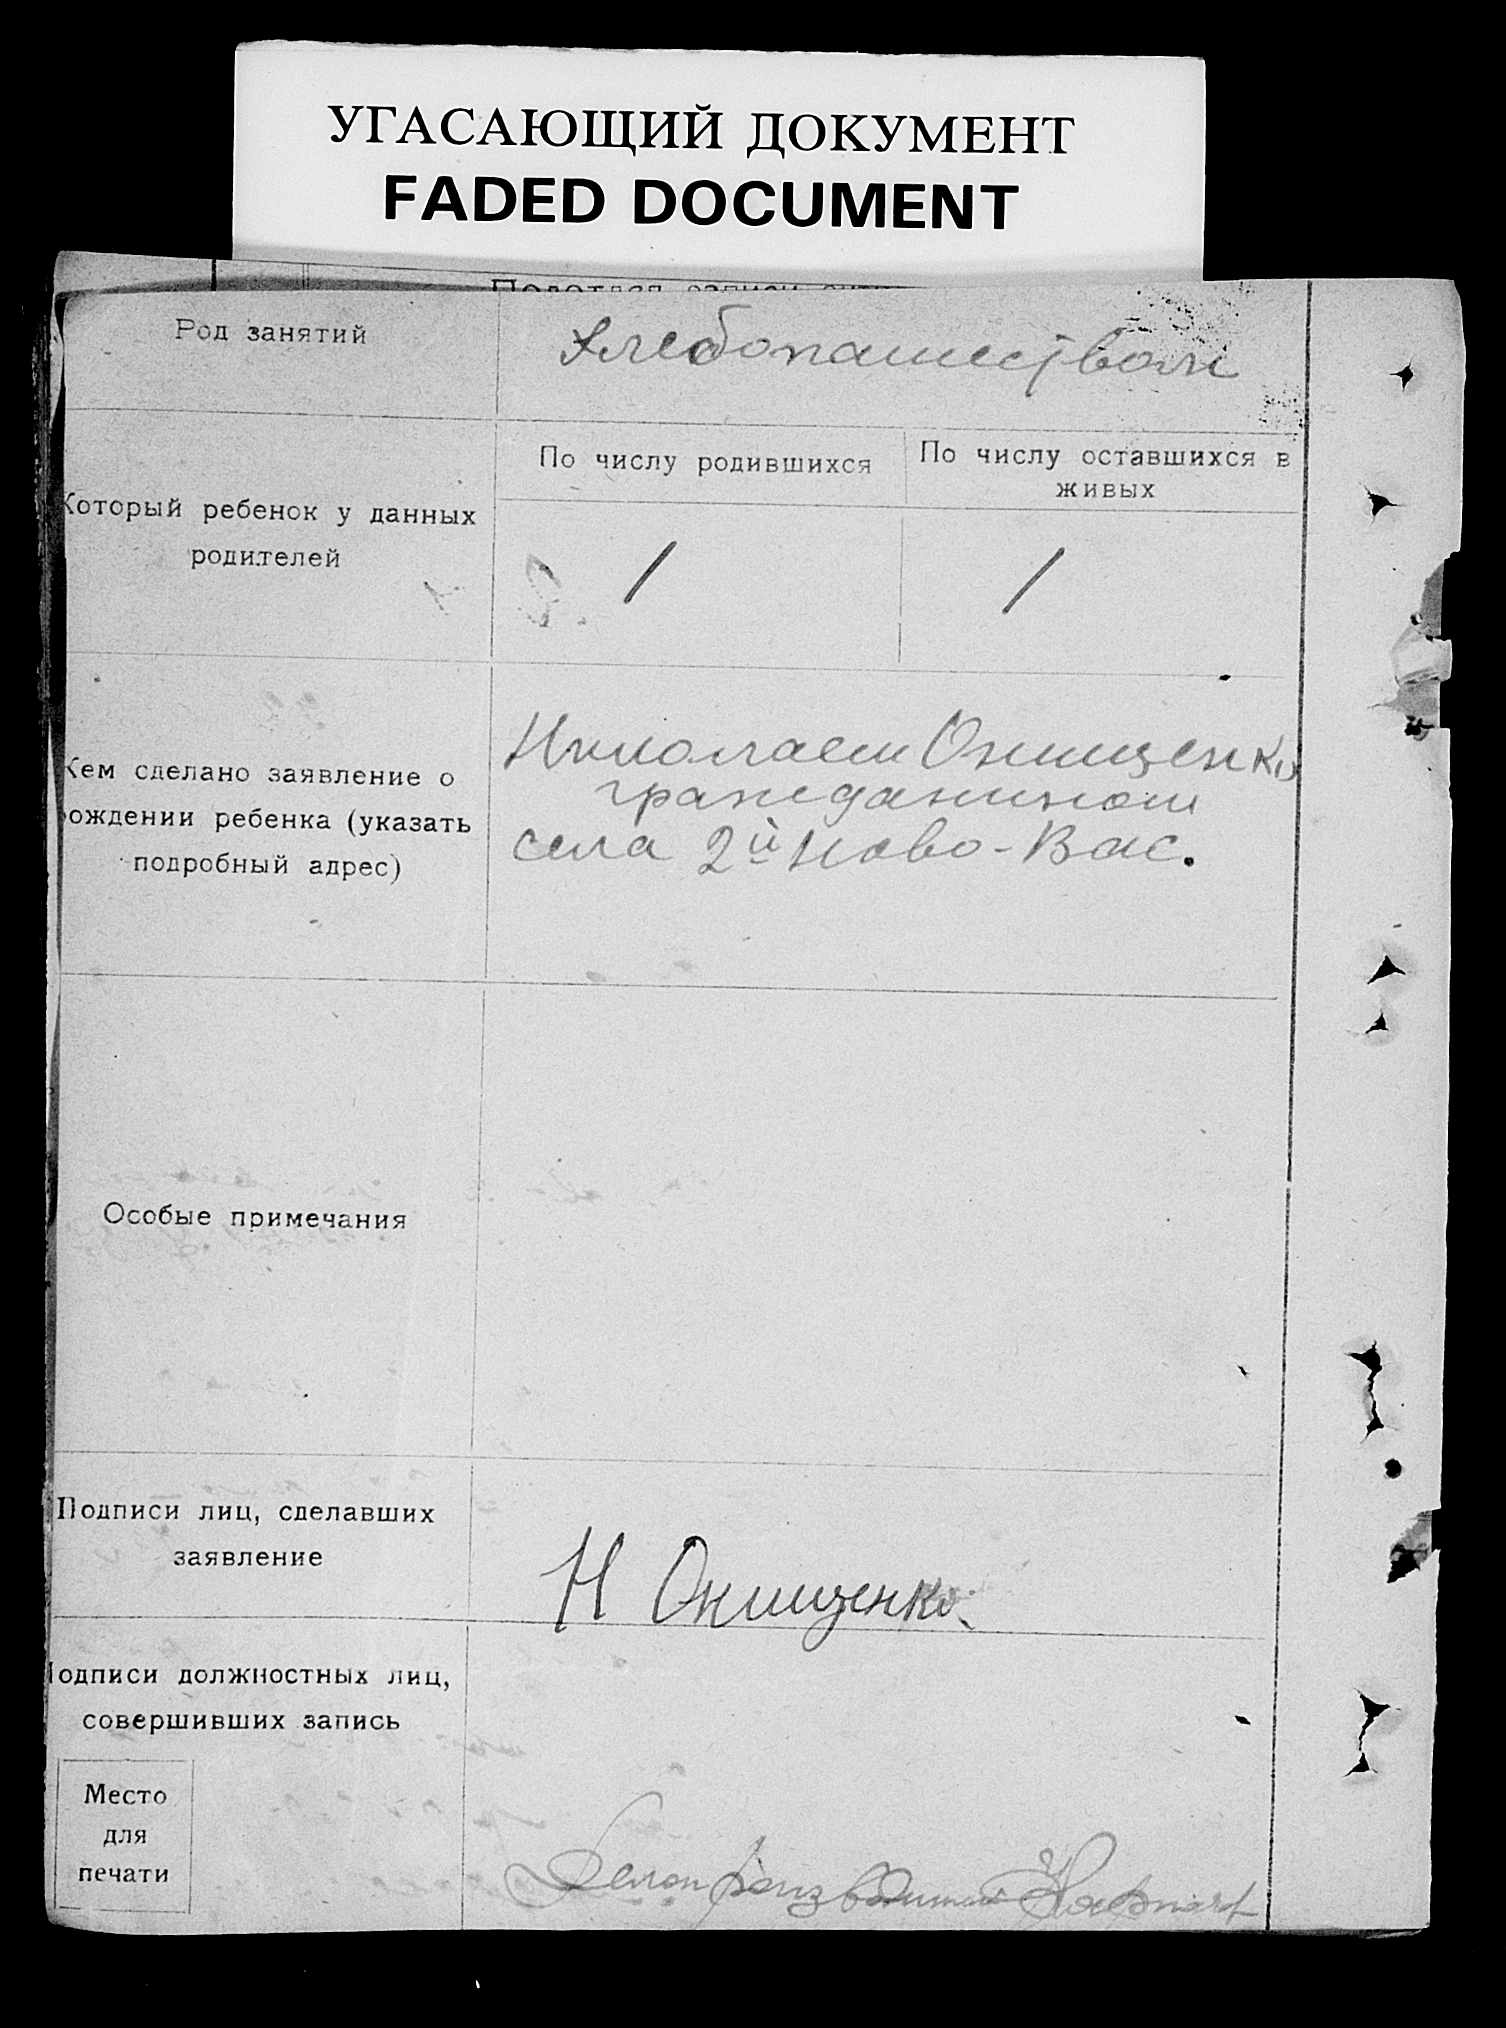 УГАСАЮЩИЙ ДОКУМЕНТ
FADED DOCUMENT
Род занятий
Хлебопашеством
Который ребенок у данных
родителей
По числу родившихся
По числу оставшихся в
живых
1
1
Кем сделано заявление о
рождении ребенка (указать
подробный адрес)
Николаем Онищенко
гражданином
села 2й Ново-Вас.
Особые примечания
Подписи лиц, сделавших
заявление
Н Онищенко
Подписи должностных лиц,
совершивших запись
Место
для
печати